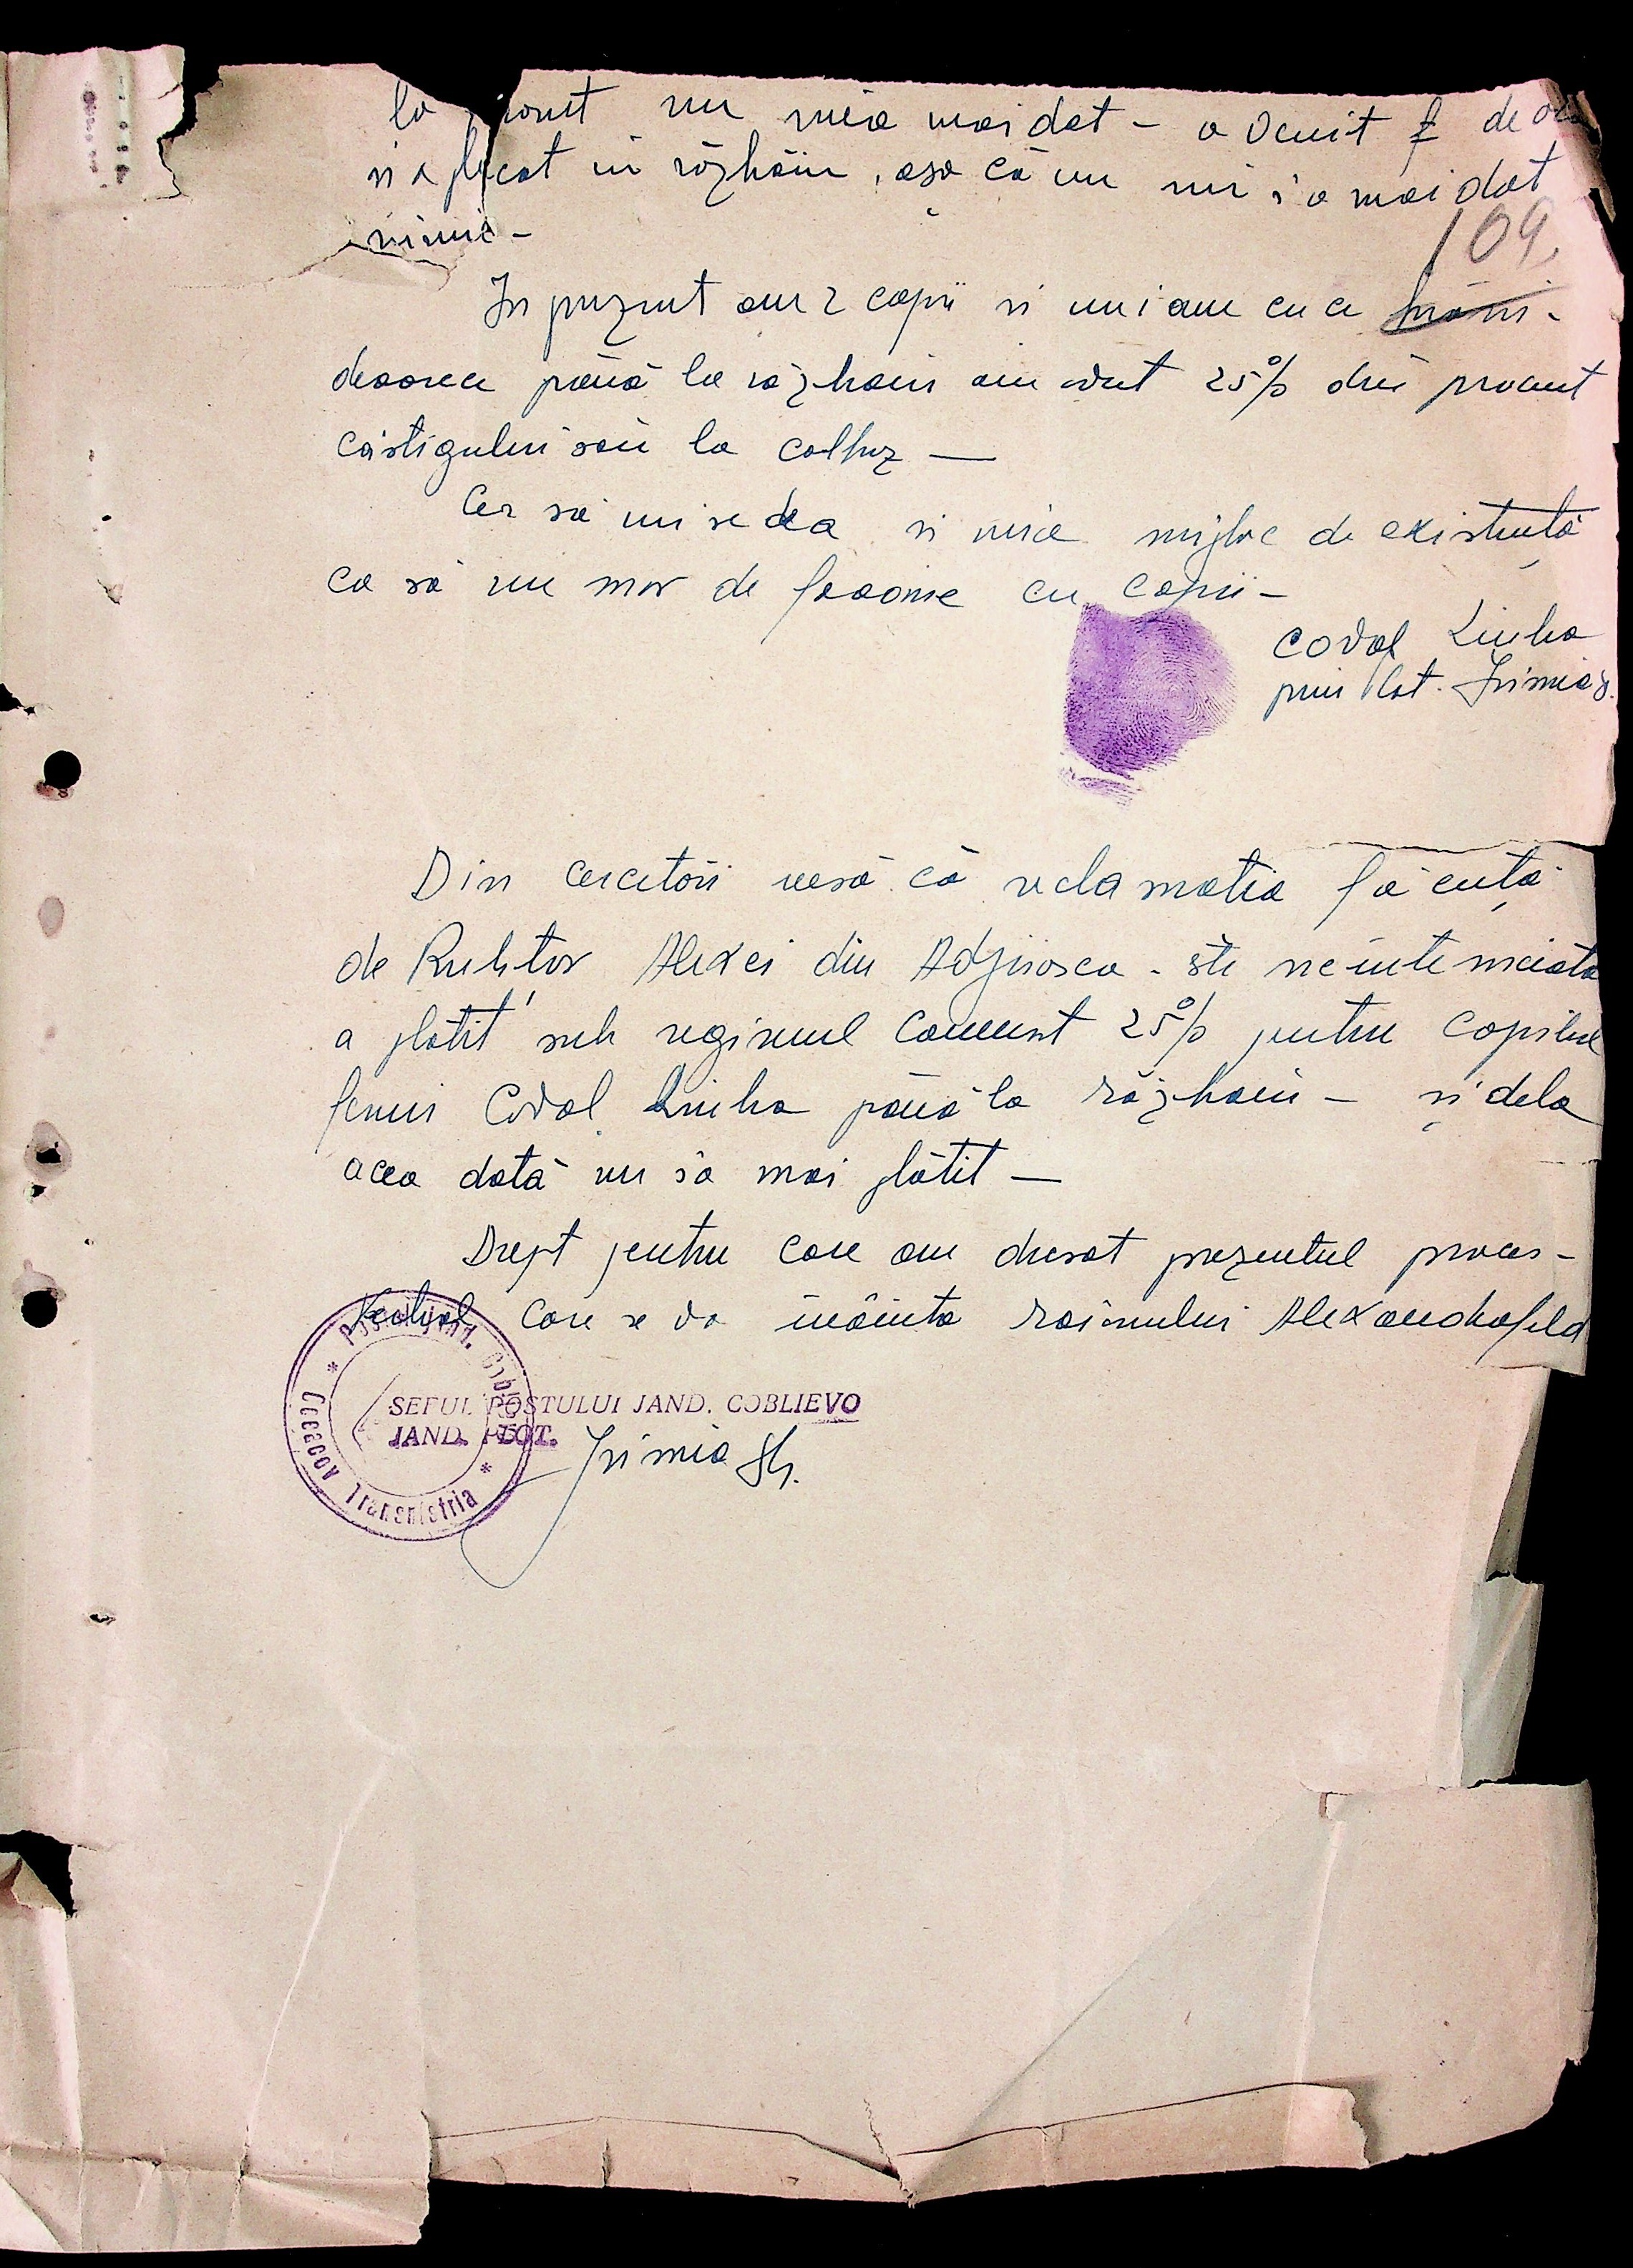 nu mia mai dat - a venit
si a plecat in răzhoiu, așa că nu mi s'a mai dat
nimic -
109.
In prezent am 2 copii si nu i am cu ce hrăni -
deoarece până la răzhoiu am avut 25% din procent
câstigului său la colhoz —
Cer să mi se dea si mie mijloc de existență
ca să nu mor de foaome cu copii -
Coval Liuba
prin Plot. Irimia
Din cercetări reesă că reclamatia făcută
de Alexei din Adjiiasca - ste neintemeiata
a plătit sub regimul Comunist 25% pentru Copilul
femei Coval Liuba până la răzhoiu - și dela
acea dată nu s'a mai plătit —
Drept pentru care am dresat prezentul proces -
Verbal Care se va inainta Raionului Alexandrofeld
SEFUL POSTULUI JAND. COBLIEVO
JAND. PLOT.
Irimia Gh.
Oceacov Transnistria